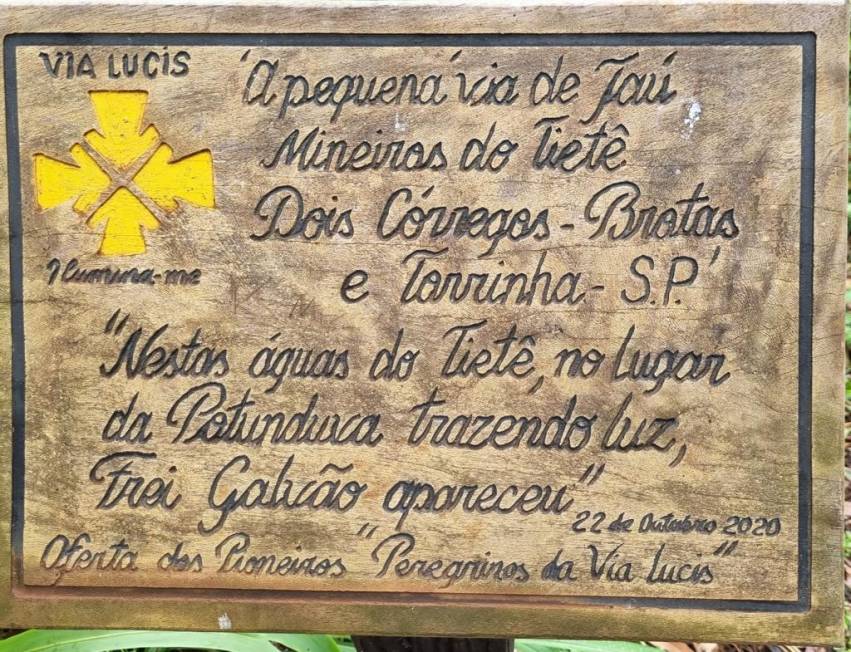 VIA LUCIS
Ilumina-me
'A pequena' via de Jaú
Mineiros do Tietê
Dois Córregos - Brotas
e Torrinha - S.P.'
"Nestas águas do Tietê, no lugar
da Potunduva trazendo luz,
Frei Galvão apareceu"
22 de Outubro 2020
Oferta dos Pioneiros "Peregrinos da Via Lucis"